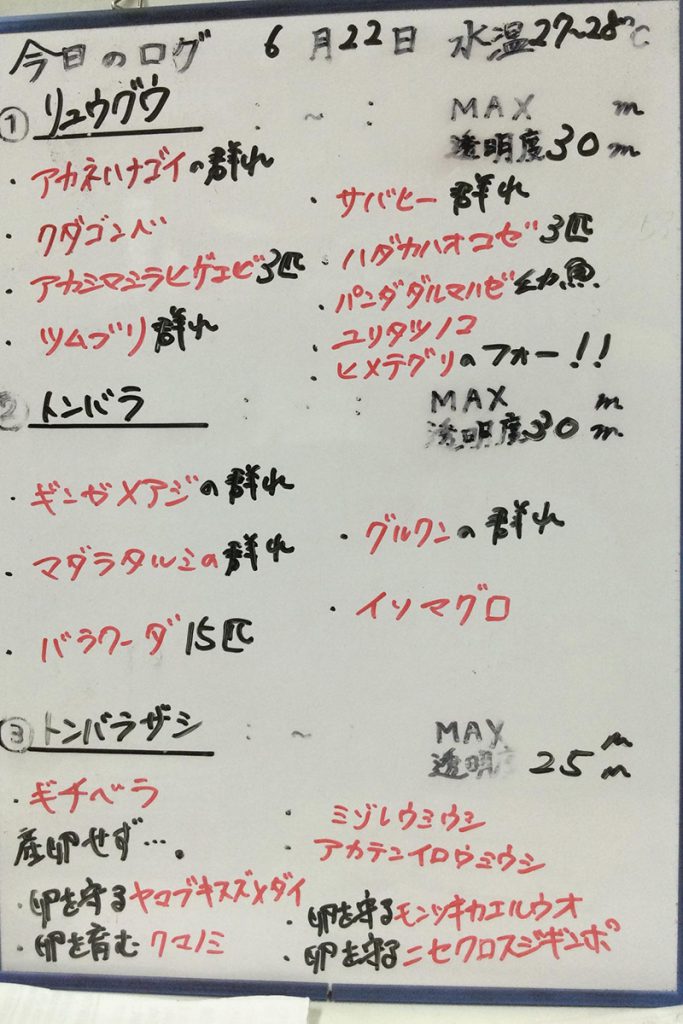 今日のログ 6月22日 水温27~28℃
① リュウグウ : ~ : MAX m
透明度30m
・アカネハナゴイの群れ
・クダゴンベ
・アカシマシラヒゲエビ3匹
・ツムブリ群れ
・サバヒー群れ
・ハダカハオコゼ3匹
・パンダダルマハゼ幼魚
・ユリタツノコ
・ヒメテグリのフォー!!
② トンバラ : : MAX m
透明度30m
・ギンガメアジの群れ
・マダラタルミの群れ
・バラクーダ15匹
・グルクンの群れ
・イソマグロ
③ トンバラザシ : ~ MAX m
透明度 25m
・ギチベラ
産卵せず…。
・卵を守るヤマブキスズメダイ
・卵を育むクマノミ
・ミゾレウミウシ
・アカテンイロウミウシ
・卵を守るモンツキカエルウオ
・卵を守るニセクロスジギンポ